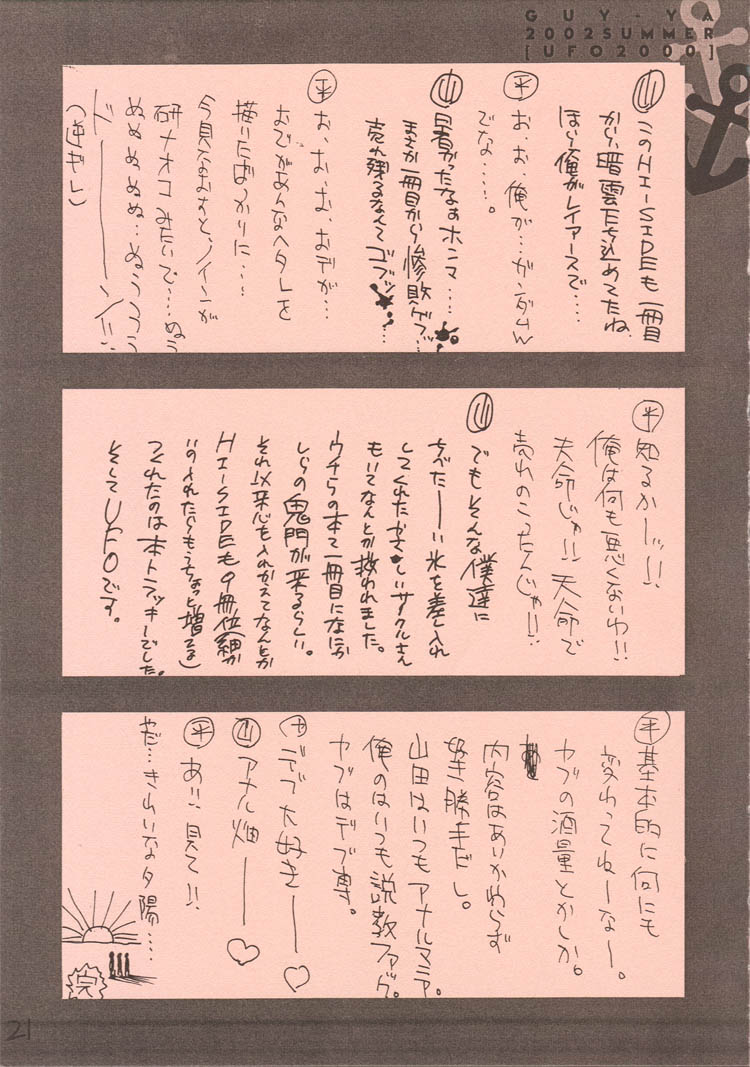 GUY-YA
2002SUMMER
[UFO2000]
山 このHI-SIDEも一冊目
から暗雲たち込めてたね
ほら俺がレイアースで....
平 お、お、俺が...ガンダムW
でな.....。
山 暑かったなぁホンマ....
まさか一冊目から惨敗ゲフッ...
売れ残るなんてゴブッ...
平 お、お、お、おデが...
おでがあんなヘタレを
描いたばっかりに...
今見なおすと、ノインが
研ナオコみたいで...ぬう
ぬぬぬぬぬ...ぬううううう
平 知るかーッ!!
俺は何も悪くないわ!!
天命じゃ!!天命で
売れのこったんじゃ!!
山 でもそんな僕達に
つべたーい氷を差し入れ
してくれたやさしいサークルさん
もいてなんとか救われました。
ウチらの本て一冊目になにか
しらの鬼門が来るらしい。
それ以来心を入れかえてなんとか
HI-SIDEも9冊位(細か
いの入れたらもうちょっと増える)
つくれたのは本トラッキーでした。
そしてUFOです。
平 基本的に何にも
変わってねーなー。
ヤブの酒量とかしか。
内容はあいかわらず
好き勝手だし。
山田はいつもアナルマニア。
俺のはいつも説教ファック。
ヤブはデブ専。
ヤ デブ大好きー♡
山 アナル畑ー♡
平 あ!!見て!!
やだ...きれいな夕陽....
完
21